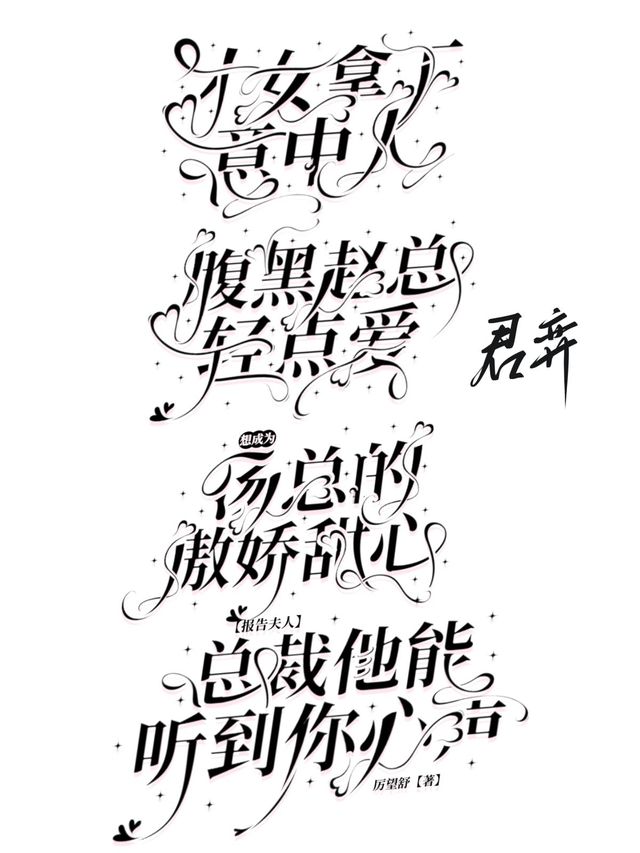 才女拿下
意中人
腹黑赵总
轻点爱
君弈
想成为
总的
傲娇甜心
【报告夫人】
总裁他能
听到你心声
厉望舒【著】